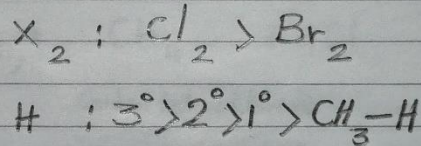 X₂ : Cl₂ > Br₂
H : 3° > 2° > 1° > CH₃–H